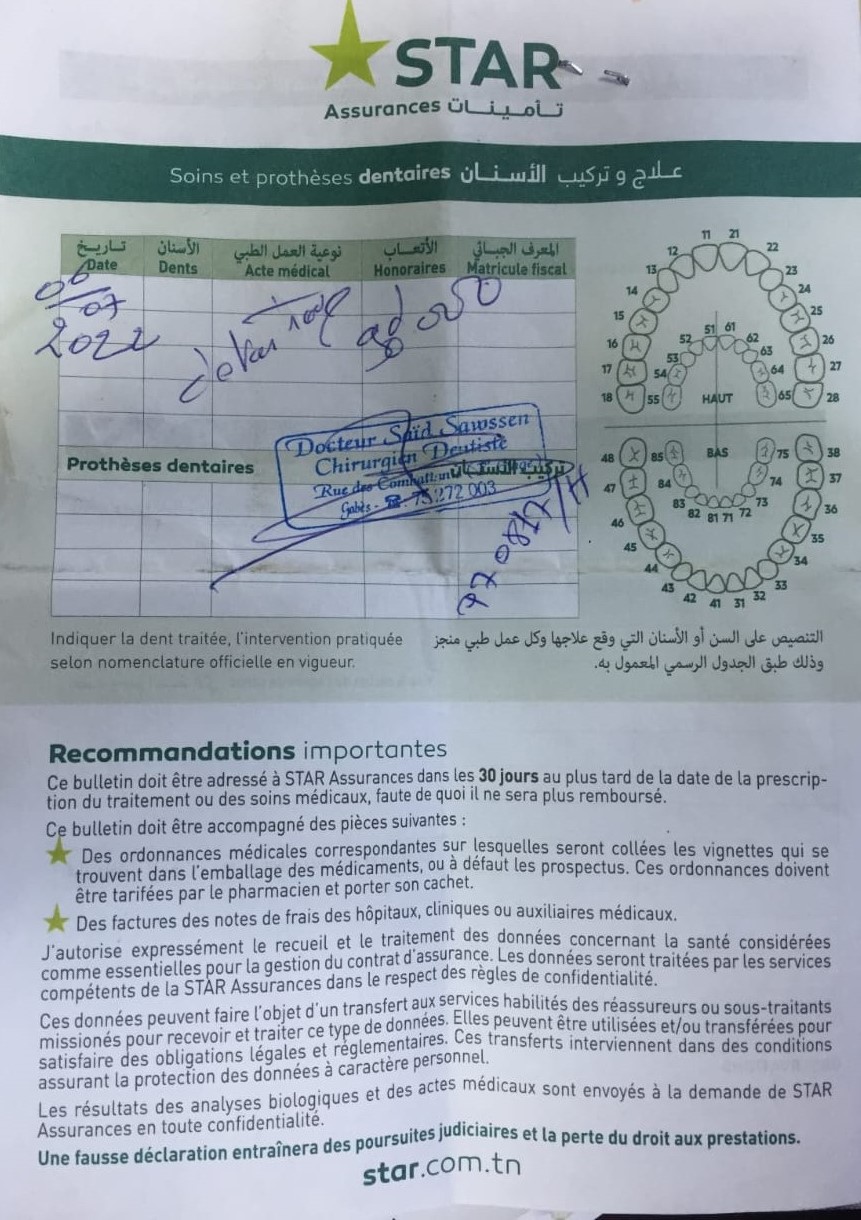 STAR
Assurances تأمينات
Soins et prothèses dentaires علاج و تركيب الأسنان
تاريخ الأسنان نوعية العمل الطبي الأتعاب المعرف الجبائي
Date Dents Acte médical Honoraires Matricule fiscal
06
07
2022
Docteur Saïd Sawssen
Chirurgien Dentiste
Rue des
Gabès - ☎: 75 272 003
Prothèses dentaires تركيب الأسنان
11 21
12 22
13 23
14 24
15 25
16 26
17 27
18 28
51 61
52 62
53 63
54 64
55 HAUT 65
48 85 BAS 75 38
47 84 74 37
83 73
82 81 71 72
46 36
45 35
44 34
43 33
42 41 31 32
Indiquer la dent traitée, l'intervention pratiquée
selon nomenclature officielle en vigueur.
التنصيص على السن أو الأسنان التي وقع علاجها وكل عمل طبي منجز
وذلك طبق الجدول الرسمي المعمول به.
Recommandations importantes
Ce bulletin doit être adressé à STAR Assurances dans les 30 jours au plus tard de la date de la prescrip-
tion du traitement ou des soins médicaux, faute de quoi il ne sera plus remboursé.
Ce bulletin doit être accompagné des pièces suivantes :
Des ordonnances médicales correspondantes sur lesquelles seront collées les vignettes qui se
trouvent dans l'emballage des médicaments, ou à défaut les prospectus. Ces ordonnances doivent
être tarifées par le pharmacien et porter son cachet.
Des factures des notes de frais des hôpitaux, cliniques ou auxiliaires médicaux.
J'autorise expressément le recueil et le traitement des données concernant la santé considérées
comme essentielles pour la gestion du contrat d'assurance. Les données seront traitées par les services
compétents de la STAR Assurances dans le respect des règles de confidentialité.
Ces données peuvent faire l'objet d'un transfert aux services habilités des réassureurs ou sous-traitants
missionés pour recevoir et traiter ce type de données. Elles peuvent être utilisées et/ou transférées pour
satisfaire des obligations légales et réglementaires. Ces transferts interviennent dans des conditions
assurant la protection des données à caractère personnel.
Les résultats des analyses biologiques et des actes médicaux sont envoyés à la demande de STAR
Assurances en toute confidentialité.
Une fausse déclaration entraînera des poursuites judiciaires et la perte du droit aux prestations.
star.com.tn